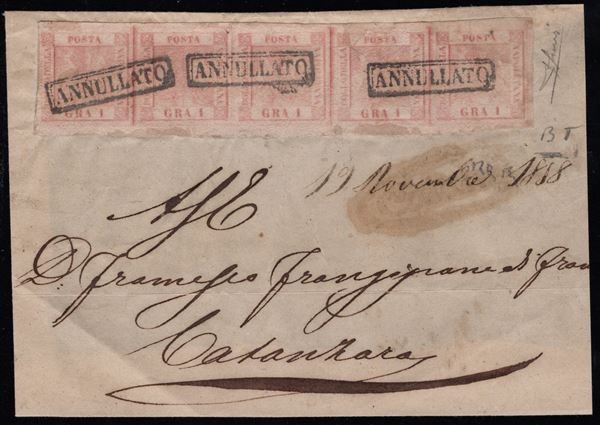 POSTA POSTA POSTA POSTA POSTA
ANNULLATO ANNULLATO ANNULLATO
GRA 1 GRA 1 GRA 1 GRA 1 GRA 1
B T
19 Novembre 1858
A S E
D. Francesco Frangipane di Fran
Catanzaro